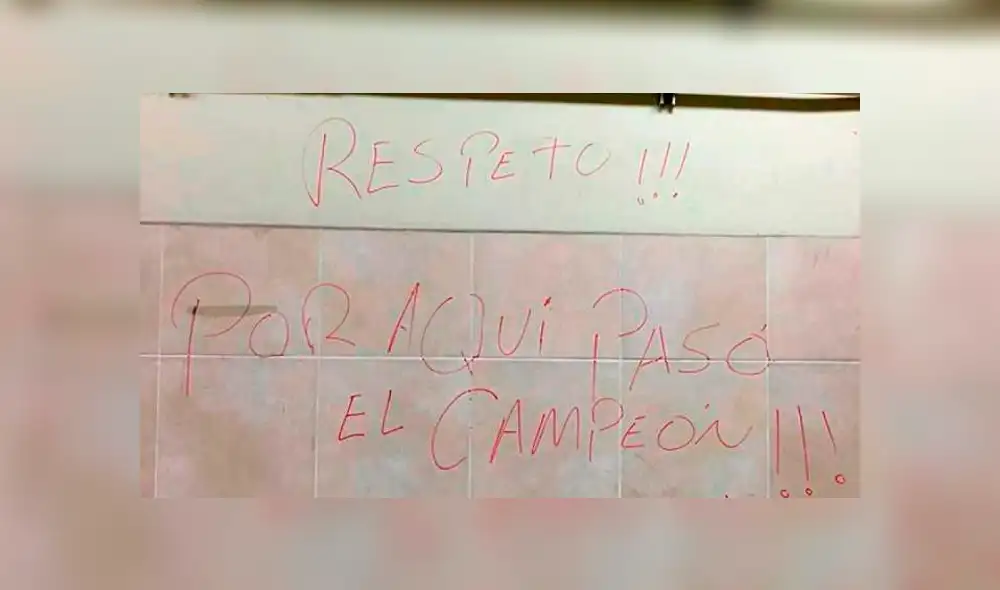 RESPETO !!!
POR AQUi PASÓ
EL CAMPEÓN !!!